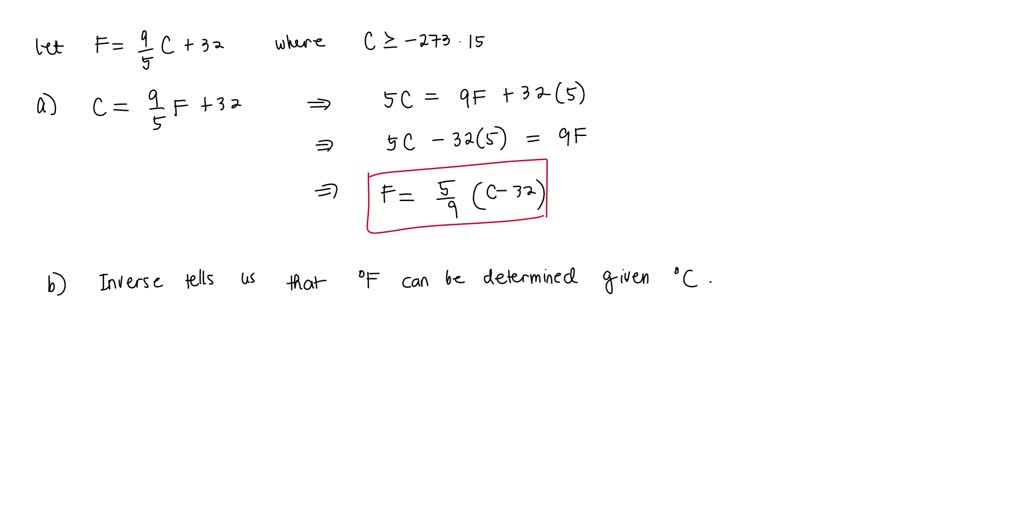 let F = 9/5 C + 32 where C ≥ -273.15
a) C = 9/5 F + 32 ⇒ 5C = 9F + 32(5)
⇒ 5C - 32(5) = 9F
⇒ F = 5/9 (C - 32)
b) Inverse tells us that °F can be determined given °C.